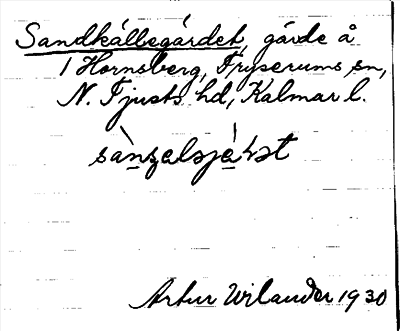 Sandkällegärdet, gärde å
1 Hornsberg, Fryserums sn,
N. Tjusts hd, Kalmar l.
Artur Wilander 1930